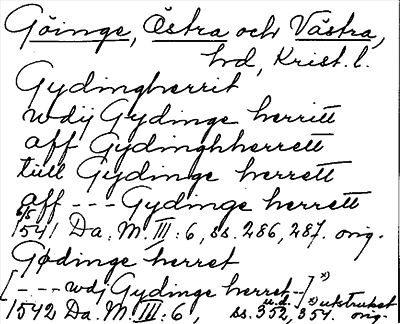 Göinge, Östra och Västra,
hd, Krist. l.
Gydingherrit
wdij Gydinge herritt
aff Gydinghherrett
tiill Gydinge herrett
aff --- Gydinge herrett
6/5 1541 Da. M. III: 6, ss. 286, 287. orig.
Gødinge herret
[---wdj Gydinge herret--] x)
u.d. x) utstruket
1542 Da. M. III: 6, ss. 352, 354. orig.